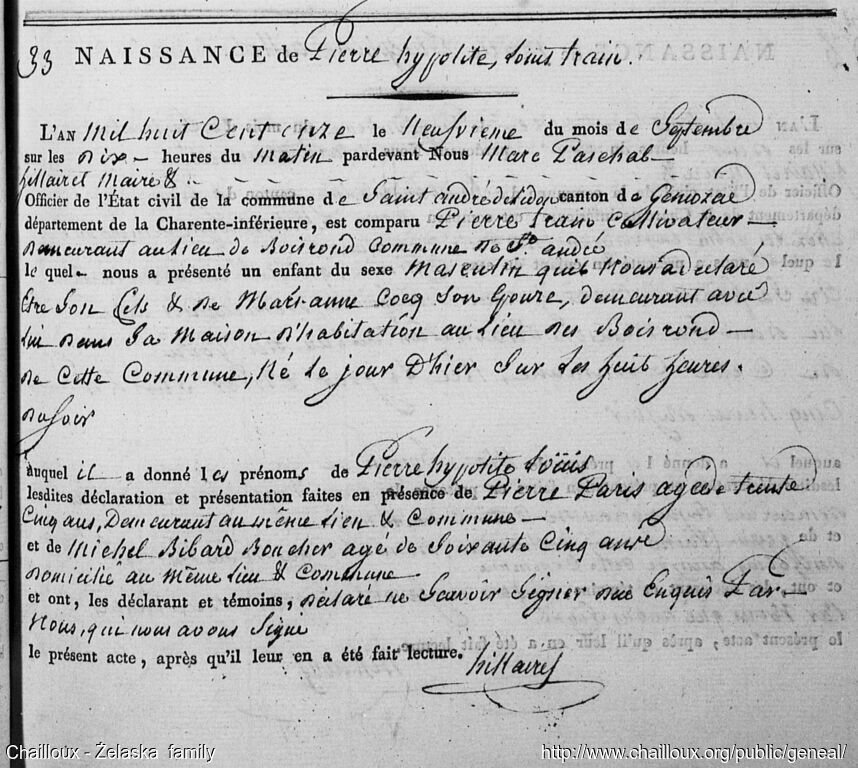 33 NAISSANCE de Pierre hypolite, Louis train.
L'AN Mil huit Cent onze le Neufvieme du mois de Septembre
sur les dix heures du Matin pardevant Nous Marc Paschal
hillairet Maire &
Officier de l'État civil de la commune de Saint andré de lidon canton de Gemozac
département de la Charente-inférieure, est comparu Pierre train Cultivateur
Demeurant au lieu de Boisrond Commune De St. andré
le quel nous a présenté un enfant du sexe Masculin qu'il Nous a declaré
Etre Son fils & de Marianne Cocq Son Epouze, demeurant avec
lui Dans Sa Maison D'habitation au Lieu des Boisrond
De Cette Commune, Né Le jour D'hier Sur Les huit heures.
du soir
auquel il a donné les prénoms de Pierre hypolite Loüis
lesdites déclaration et présentation faites en présence de Pierre Paris agé de trente
Cinq ans, Demeurant au même Lieu & Commune
et de Michel Bibard Boucher agé de Soixante Cinq ans
Domicilié au Même Lieu & Commune
et ont, les déclarant et témoins, déclaré ne Savoir Signer de ce Enquis Par
Nous, qui nous avons Signé
le présent acte, après qu'il leur en a été fait lecture.
hillairet
Chailloux - Żelaska family http://www.chailloux.org/public/geneal/